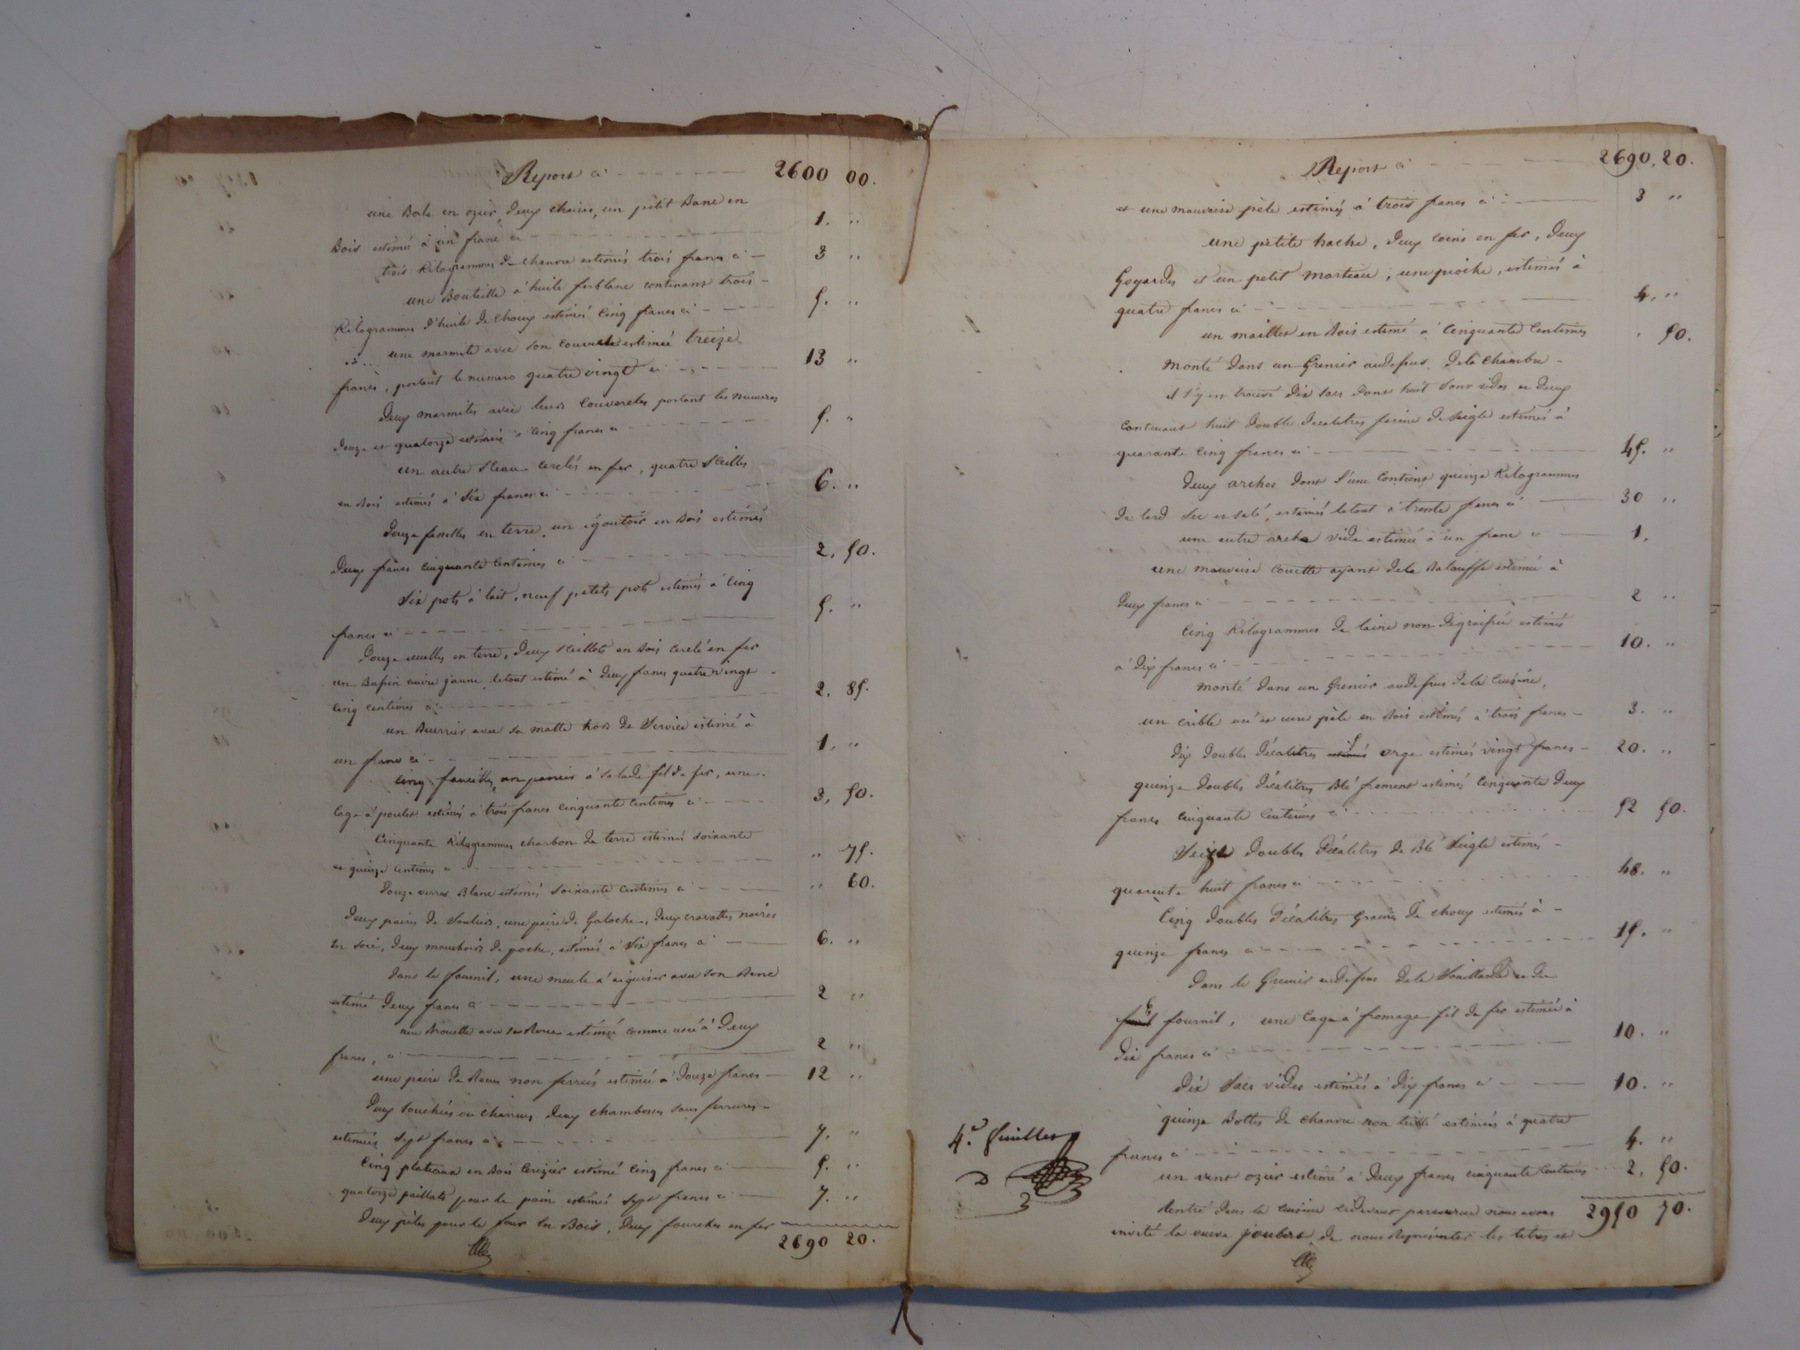 Report ci 2600 00.
une Bale en ozier, deux chaises, un petit Banc en
Bois estimé à un franc ci 1. "
trois Kilogrammes de chanvre estimés trois francs ci 3 "
une Bouteille à huile ferblanc contenant trois
Kilogrammes d'huile de choux estimés cinq francs ci 5. "
une marmite avec son couvercle estimée treize
francs, portant le numero quatre vingt ci 13 "
deux marmites avec leurs couvercles portant les numeros
douze et quatorze estimées à cinq francs ci 5. "
un autre Sceau cerclés en fer, quatre Seilles
en Bois estimés à Six francs ci 6. "
douze faselles en terre, un égoutoir en Bois estimés
deux francs cinquante centimes ci 2, 50.
Six pots à lait, neuf petits pots estimés à cinq
francs ci 5. "
douze écuelles en terre, deux Seillots en Bois cerclé en fer
un Bassin cuivre jaune, le tout estimé à deux francs quatre vingt
cinq centimes ci 2. 85.
un Beurrier avec sa matte hors de Service estimé à
un franc ci 1, "
cinq faucilles, un panier à salade fil de fer, une
cage à poulet estimés à trois francs cinquante centimes ci 3, 50.
Cinquante Kilogrammes charbon de terre estimés soixante
et quinze centimes ci " 75.
douze verres Blanc estimés soixante centimes ci " 60.
deux paires de Souliers, une paire de Galoches, deux cravattes noires
en soie, deux mouchoirs de poche, estimés à Six francs ci 6. "
dans le fournil, une meule à aiguiser avec son Banc
estimé deux francs ci 2 "
une Brouette avec sa Roue estimée comme usée à deux
francs, ci 2 "
une paire de Roues non ferrées estimée à douze francs 12 "
deux ou charrues deux sans ferrures
estimées Sept francs ci 7. "
cinq plateaux en Bois cerizier estimé cinq francs ci 5. "
quatorze paillats pour le pain estimés Sept francs ci 7. "
deux pêles pour le four en Bois, deux fourches en fer
2690 20.
Report ci 2690, 20.
et une mauvaise pêle estimés à trois francs ci 3 "
une petite hache, deux coins en fer, deux
Goyardes et un petit marteau, une pioche, estimés à
quatre francs ci 4. "
un maillet en Bois estimé à cinquante centimes . 50.
monté dans un Grenier audessus de la chambre
il s'y est trouvé dix sacs dont huit sont vides et deux
contenant huit double décalitres farine de Seigle estimés à
quarante cinq francs ci 45. "
deux arches dont l'une contient quinze Kilogrammes
de lard sec et salé, estimés le tout à trente francs ci 30 "
une autre arche vide estimée à un franc ci 1.
une mauvaise couette ayant de la Balouffe estimée à
deux francs ci 2 "
cinq Kilogrammes de laine non dégraissée estimés
à dix francs ci 10. "
monté dans un Grenier audessus de la cuisine,
un crible usé et une pêle en Bois estimés à trois francs 3. "
dix doubles décalitres orge estimés vingt francs 20. "
quinze doubles décalitres Blé froment estimés cinquante deux
francs cinquante centimes ci 52 50.
Seize doubles décalitres de Blé Seigle estimés
quarante huit francs ci 48. "
cinq doubles décalitres graines de choux estimés à
quinze francs ci 15. "
dans le Grenier audessus de la Souillarde et du
fournil, une cage à fromage fil de fer estimée à
dix francs ci 10. "
dix Sacs vides estimés à dix francs ci 10. "
quinze Bottes de chanvre non teillé estimées à quatre
francs ci 4. "
un vent ozier estimé à deux francs cinquante centimes 2, 50.
Rentré dans la cuisine cidevant parcourue nous avons 2950 70.
invité la veuve joubert de nous Représenter les titres et
4e. feuillet